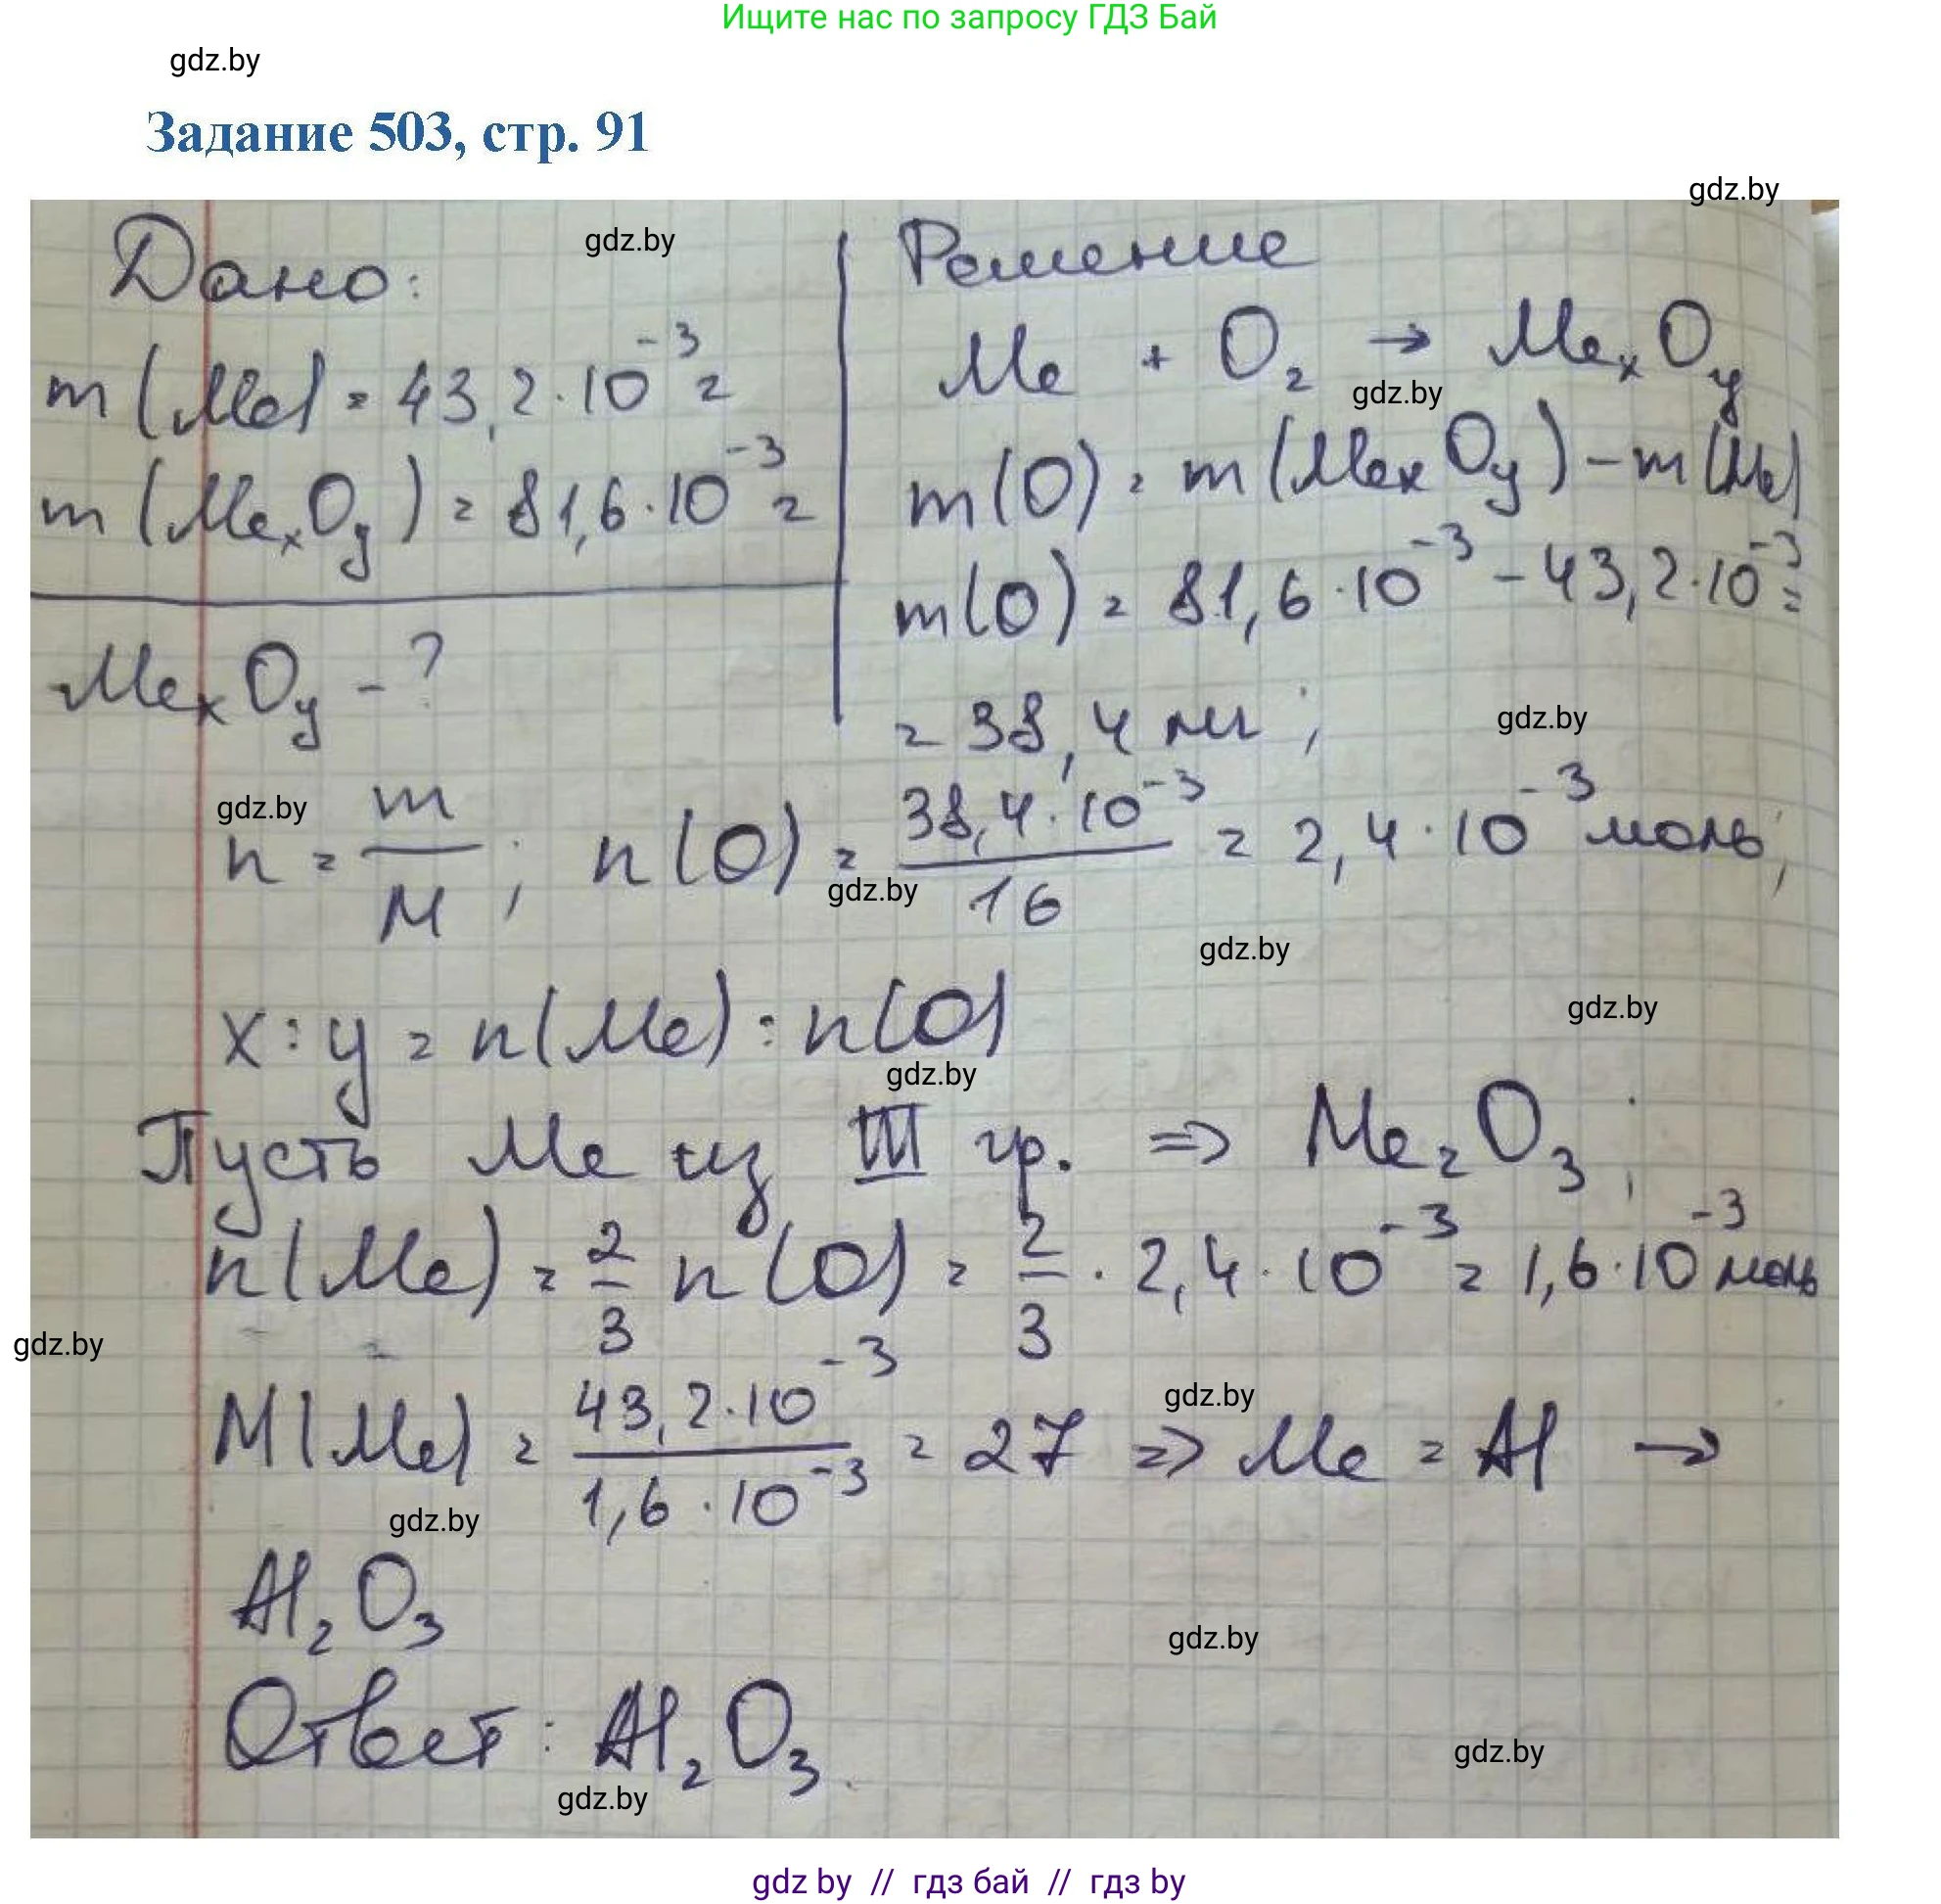 Ищите нас по запросу ГДЗ Бай
gdz.by
Задание 503, стр. 91
gdz.by
Дано:
gdz.by
m(Me) = 43,2·10⁻³ г
m(MeₓOᵧ) = 81,6·10⁻³ г
MeₓOᵧ - ?
Решение
Me + O₂ → MeₓOᵧ
gdz.by
m(O) = m(MeₓOᵧ) - m(Me)
m(O) = 81,6·10⁻³ - 43,2·10⁻³ =
= 38,4 мг;
gdz.by
gdz.by
n = m/M; n(O) = 38,4·10⁻³/16 = 2,4·10⁻³ моль;
gdz.by
gdz.by
gdz.by
x : y = n(Me) : n(O)
gdz.by
Пусть Me из III гр. => Me₂O₃;
n(Me) = 2/3 n(O) = 2/3 · 2,4·10⁻³ = 1,6·10⁻³ моль
gdz.by
gdz.by
M(Me) = 43,2·10⁻³/1,6·10⁻³ = 27 => Me = Al →
gdz.by
Al₂O₃
gdz.by
Ответ: Al₂O₃.
gdz.by
gdz.by
gdz by // гдз бай // гдз by